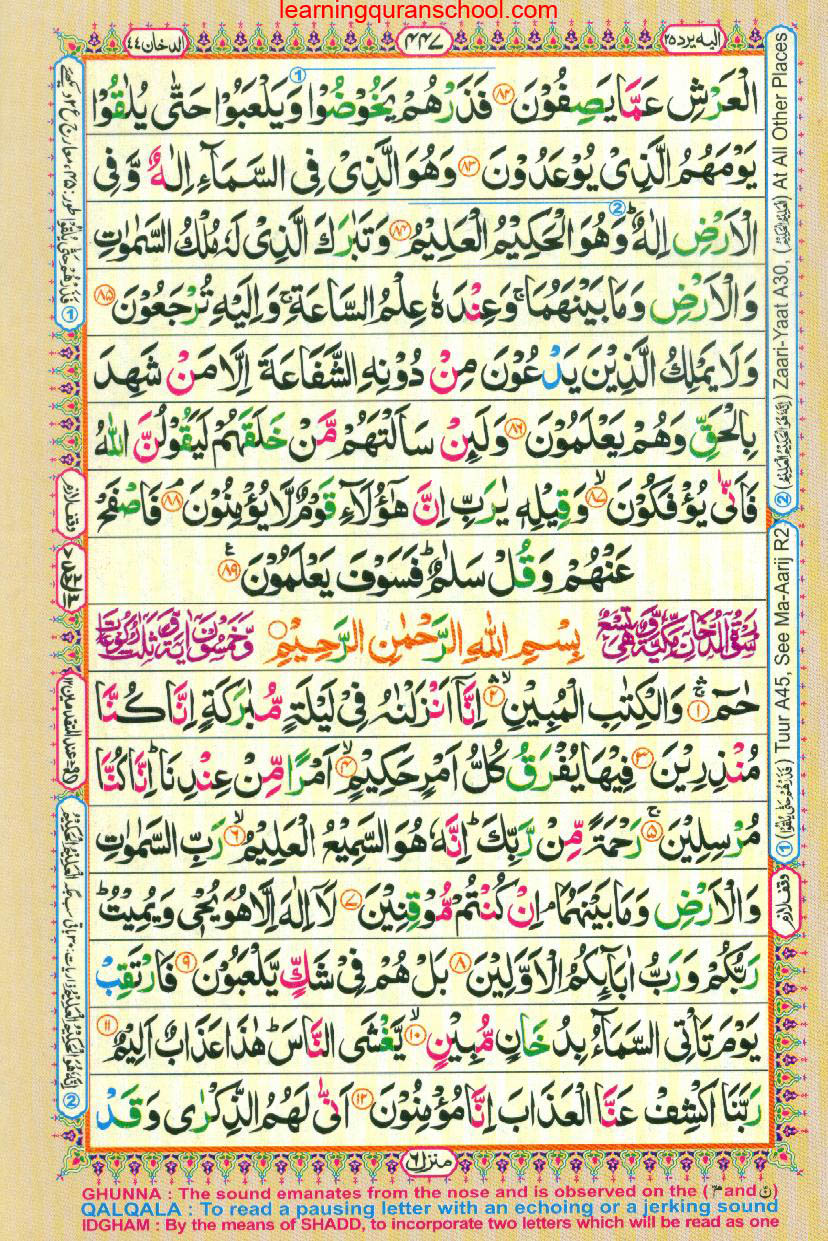 learningquranschool.com
الدخان ٤٤
٤٤٧
الیه یرد ٢٥
الْعَرْشِ عَمَّا يَصِفُوْنَ ﴿٨٢﴾ فَذَرْهُمْ يَخُوْضُوْا وَيَلْعَبُوْا حَتّٰى يُلٰقُوْا
يَوْمَهُمُ الَّذِىْ يُوْعَدُوْنَ ﴿٨٣﴾ وَهُوَ الَّذِىْ فِى السَّمَآءِ اِلٰهٌ وَّفِى
الْاَرْضِ اِلٰهٌ ؕ وَهُوَ الْحَكِيْمُ الْعَلِيْمُ ﴿٨٤﴾ وَتَبٰرَكَ الَّذِىْ لَهٗ مُلْكُ السَّمٰوٰتِ
وَالْاَرْضِ وَمَا بَيْنَهُمَا ۚ وَعِنْدَهٗ عِلْمُ السَّاعَةِ ۚ وَاِلَيْهِ تُرْجَعُوْنَ ﴿٨٥﴾
وَلَا يَمْلِكُ الَّذِيْنَ يَدْعُوْنَ مِنْ دُوْنِهِ الشَّفَاعَةَ اِلَّا مَنْ شَهِدَ
بِالْحَقِّ وَهُمْ يَعْلَمُوْنَ ﴿٨٦﴾ وَلَئِنْ سَاَلْتَهُمْ مَّنْ خَلَقَهُمْ لَيَقُوْلُنَّ اللّٰهُ
فَاَنّٰى يُؤْفَكُوْنَ ۙ﴿٨٧﴾ وَقِيْلِهٖ يٰرَبِّ اِنَّ هٰٓؤُلَآءِ قَوْمٌ لَّا يُؤْمِنُوْنَ ﴿٨٨﴾ فَاصْفَحْ
عَنْهُمْ وَقُلْ سَلٰمٌ ؕ فَسَوْفَ يَعْلَمُوْنَ ﴿٨٩﴾
سُوْرَةُ الدُّخَانِ مَكِّيَّةٌ وَّهِىَ تِسْعٌ
بِسْمِ اللّٰهِ الرَّحْمٰنِ الرَّحِيْمِ
وَّخَمْسُوْنَ اٰيَةً وَّثَلٰثُ رُكُوْعَاتٍ
حٰمٓ ﴿١﴾ وَالْكِتٰبِ الْمُبِيْنِ ﴿٢﴾ اِنَّاۤ اَنْزَلْنٰهُ فِىْ لَيْلَةٍ مُّبٰرَكَةٍ اِنَّا كُنَّا
مُنْذِرِيْنَ ﴿٣﴾ فِيْهَا يُفْرَقُ كُلُّ اَمْرٍ حَكِيْمٍ ۙ﴿٤﴾ اَمْرًا مِّنْ عِنْدِنَا ؕ اِنَّا كُنَّا
مُرْسِلِيْنَ ۚ﴿٥﴾ رَحْمَةً مِّنْ رَّبِّكَ ؕ اِنَّهٗ هُوَ السَّمِيْعُ الْعَلِيْمُ ۙ﴿٦﴾ رَبِّ السَّمٰوٰتِ
وَالْاَرْضِ وَمَا بَيْنَهُمَا ۘ اِنْ كُنْتُمْ مُّوْقِنِيْنَ ﴿٧﴾ لَاۤ اِلٰهَ اِلَّا هُوَ يُحْىٖ وَيُمِيْتُ ؕ
رَبُّكُمْ وَرَبُّ اٰبَآئِكُمُ الْاَوَّلِيْنَ ﴿٨﴾ بَلْ هُمْ فِىْ شَكٍّ يَّلْعَبُوْنَ ﴿٩﴾ فَارْتَقِبْ
يَوْمَ تَاْتِى السَّمَآءُ بِدُخَانٍ مُّبِيْنٍ ۙ﴿١٠﴾ يَّغْشَى النَّاسَ ؕ هٰذَا عَذَابٌ اَلِيْمٌ ﴿١١﴾
رَبَّنَا اكْشِفْ عَنَّا الْعَذَابَ اِنَّا مُؤْمِنُوْنَ ﴿١٢﴾ اَنّٰى لَهُمُ الذِّكْرٰى وَقَدْ
منزل ٦
① Tuur A45, See Ma-Aarij R2
② Zaari-Yaat A30, At All Other Places
وقف لازم
وقف لازم
GHUNNA : The sound emanates from the nose and is observed on the (مّ and نّ)
QALQALA : To read a pausing letter with an echoing or a jerking sound
IDGHAM : By the means of SHADD, to incorporate two letters which will be read as one